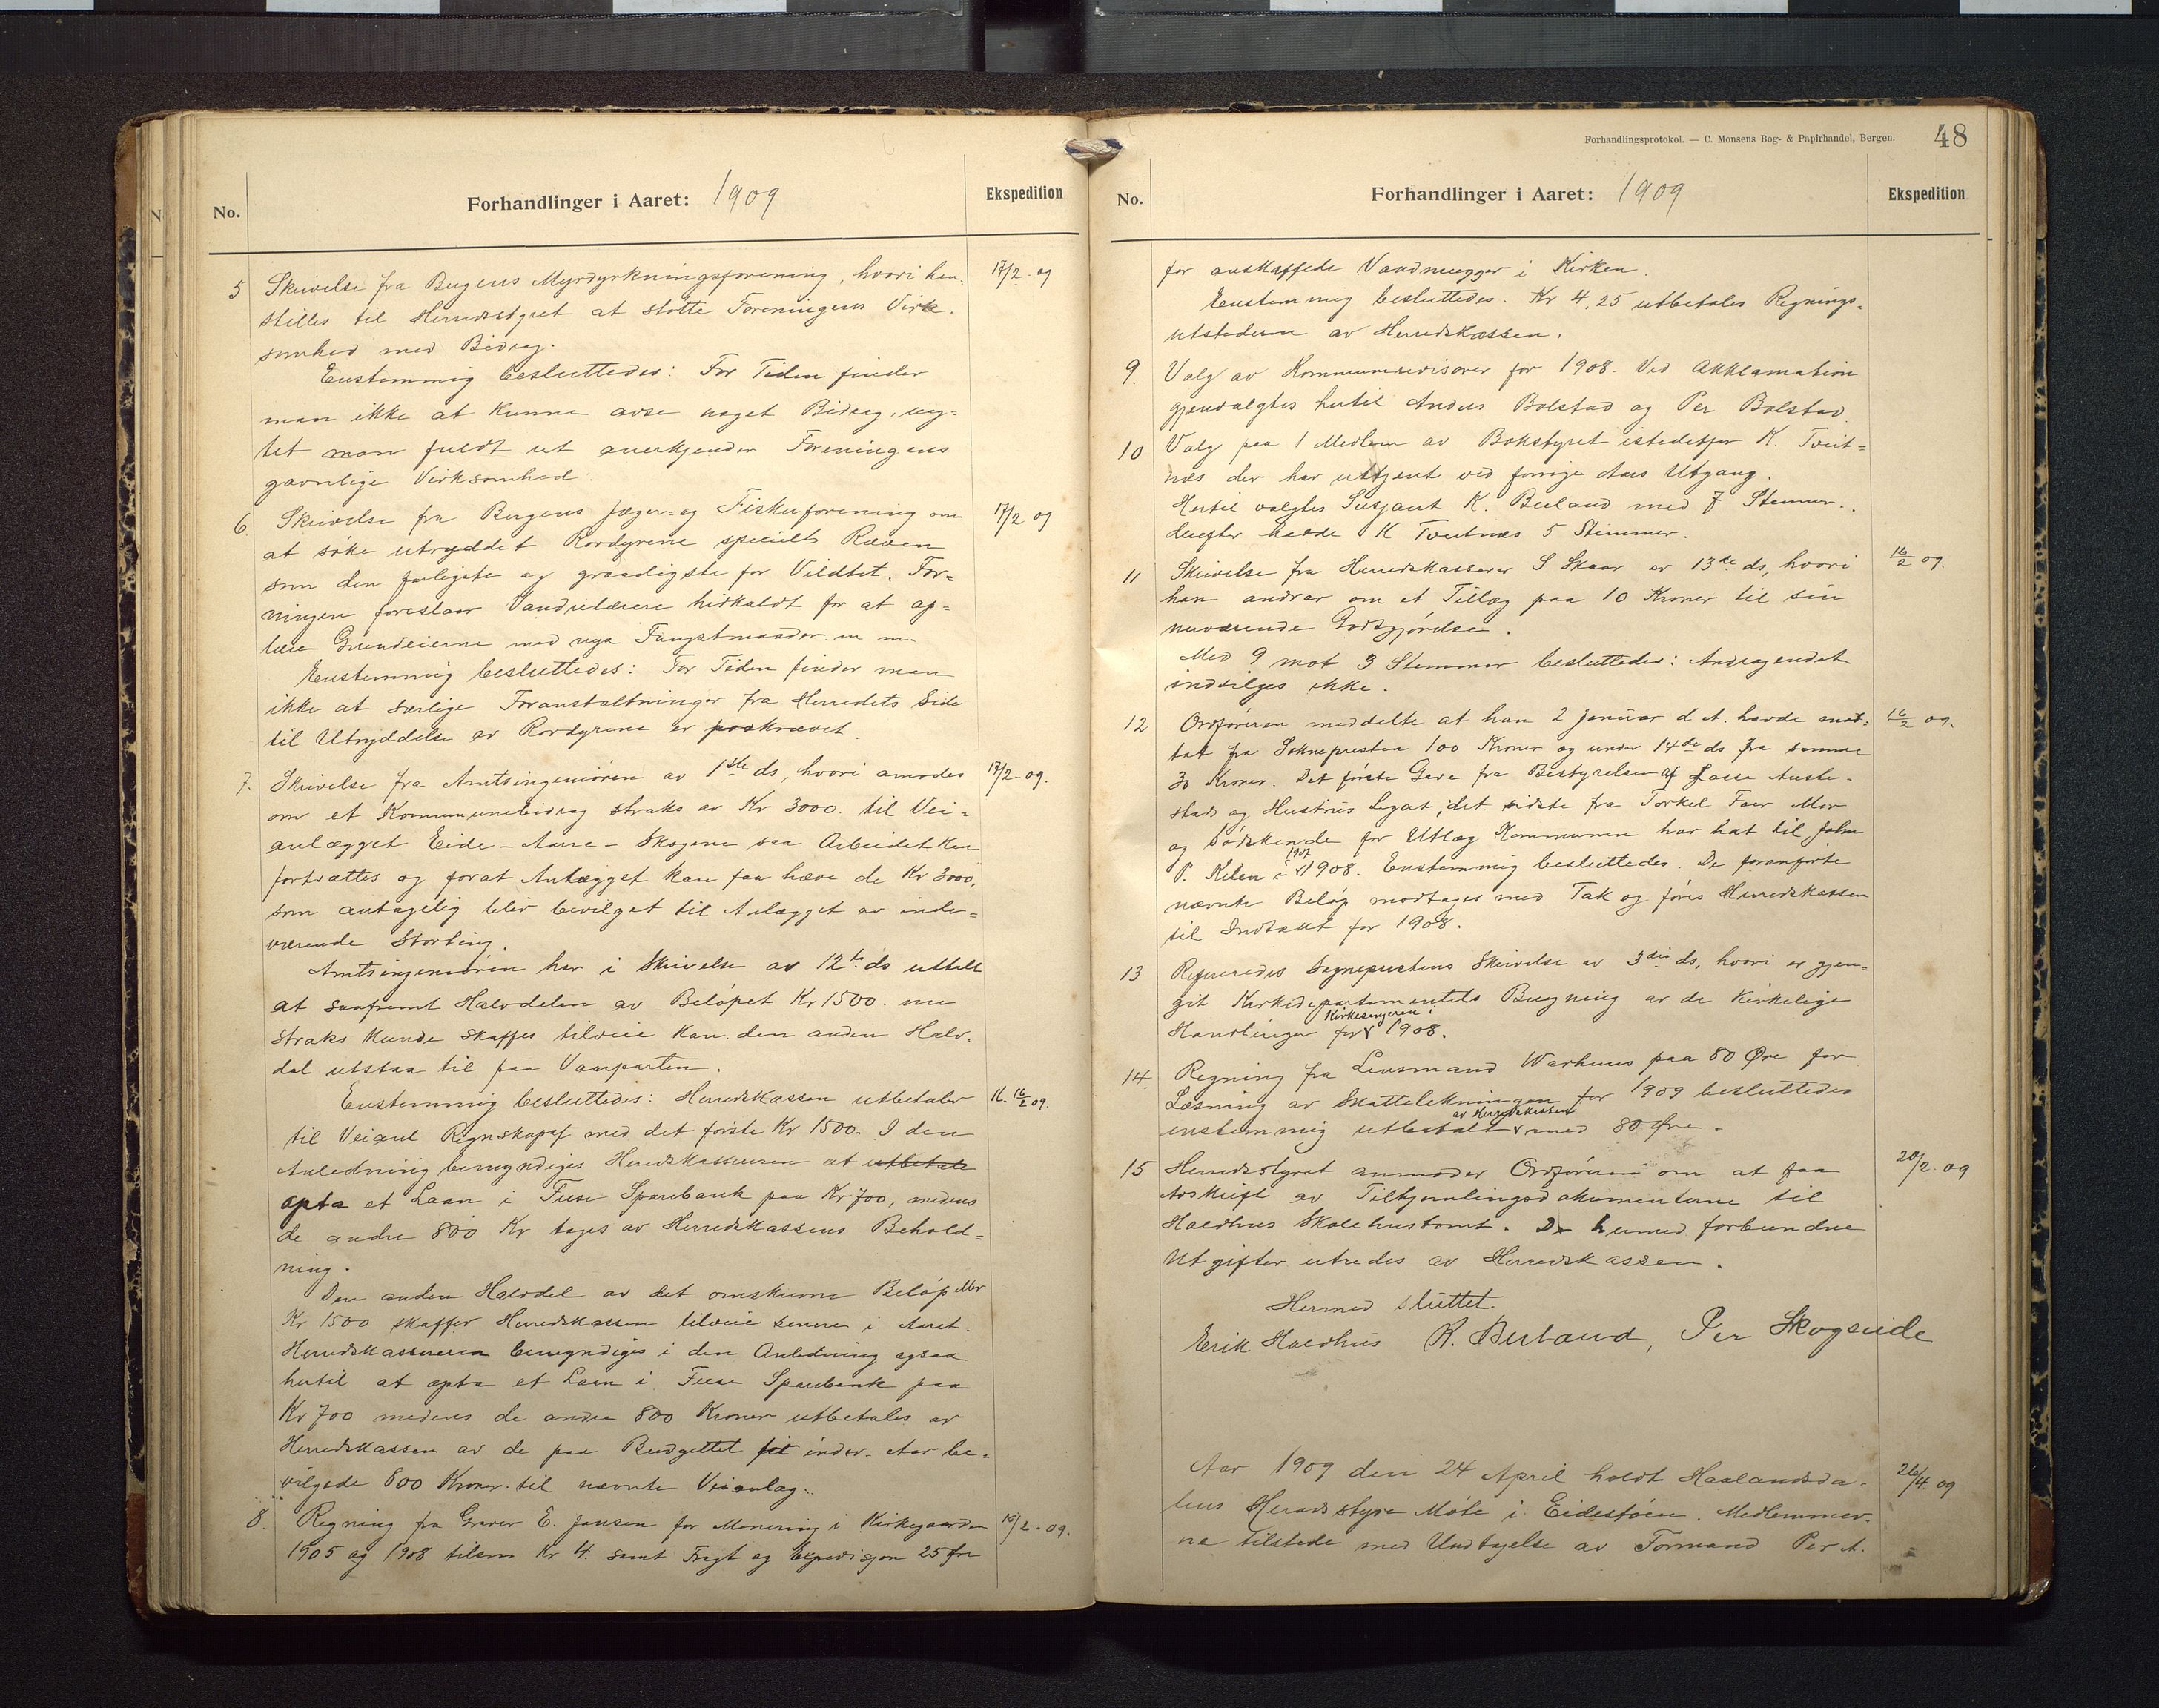 No.
Forhandlinger i Aaret: 1909
Ekspedition
5 Skrivelse fra Bergens Myrdyrkningsforening, hvori hen- 17/2-09
stilles til Herredsstyret at støtte Foreningens Virk-
somhed med Bidrag.
Enstemmig besluttedes: For Tiden finder
man ikke at kunne avse noget Bidrag, ug-
tet man fuldt ut anerkjender Foreningens
gavnlige Virksomhed.
6 Skrivelse fra Bergens Jæger- og Fiskerforening om 17/2 09
at søke utryddet Rovdyrene specielt Ræven
som den farligste og graadigste for Vildtet. For-
ningen foreslaar Vandrelærere hidkaldt for at op-
lære Grundeierne med nya Fangstmaader m m.
Enstemmig besluttedes: For Tiden finder man
ikke at særlige Foranstaltninger fra Herredets Side
til Utryddelse av Rovdyrene er paakrævet.
7. Skrivelse fra Amtsingeniøren av 1ste ds, hvori anmodes 17/2-09.
om et Kommunebidrag straks av Kr 3000. til Vei-
anlægget Eide - Aarre - Skogene saa Arbeidet kan
fortsættes og forat Anlægget kan faa hæve de Kr 3000,
som antagelig blir bevilget til Anlægget av inde-
værende Storting.
Amtsingeniøren har i Skrivelse av 12te ds uttalt
at saafremt Halvdelen av Beløpet Kr 1500. nu
straks kunde skaffes tilveie kan den anden Halv-
del utstaa til paa Vaarparten.
Enstemmig besluttedes: Herredskassen utbetaler K. 16/2 09.
til Veianl Regnskapsf med det første Kr 1500. I den
Anledning bemyndiges Herredskassereren at utbetale
opta et Laan i Fuse Sparebank paa Kr 700, medens
de andre 800 Kr tages av Herredskassens Behold-
ning.
Den anden Halvdel av det omskrevne Beløp
Kr 1500 skaffer Herredskassen tilveie senere i Aaret.
Herredskassereren bemyndiges i den Anledning ogsaa
hertil at opta et Laan i Fuse Sparebank paa
Kr 700 medens de andre 800 Kroner utbetales av
Herredskassen av de paa Budgettet for indev. Aar be-
vilgede 800 Kroner til nævnte Veianlæg.
8. Regning fra Graver E. Jansen for Monering i Kirkegaarden 15/2-09.
1905 og 1908 tilsm Kr 4. samt Fragt og Expedisjon 25 Øre
Forhandlingsprotokol. — C. Monsens Bog- & Papirhandel, Bergen. 48
No.
Forhandlinger i Aaret: 1909
Ekspedition
for anskaffede Vandmugger i Kirken.
Enstemmig besluttedes. Kr 4,25 utbetales Regnings-
utstederen av Herredskassen.
9. Valg av Kommunerevisorer for 1908. Ved Akklamation
gjenvalgtes hertil Anders Bolstad og Per Bolstad.
10 Valg paa 1 Medlem av Bokstyret istedetfor K. Tveit-
nes der har uttjent ved forrige Aars Utgang.
Hertil valgtes Sersjant K. Berland med 7 Stemmer.
derefter havde K Tveitnæs 5 Stemmer.
11 Skrivelse fra Herredskasserer S Skaar av 13de ds, hvori 16/2 09.
han andrar om et Tillæg paa 10 Kroner til sin
nuværende Godtgjørelse.
Med 9 mot 3 Stemmer besluttedes: Andragendet
indvilges ikke.
12 Ordføreren meddelte at han 2 Januar d A. havde mot- 16/2 09.
tat fra Sokneprestea 100 Kroner og under 14de ds fra samme
30 Kroner. Det første Gave fra Bestyrelsen af Lasse Auste-
stads og Hustrus Legat, det sidste fra Torkel Faer Mor
og Sødskende for Utlæg Kommunen har hat til John
P. Kilen i 1907 1908. Enstemmig besluttedes. De foranførte
nævnte Beløp modtages med Tak og føres Herredskassen
til Indtækt for 1908.
13 Refereredes Sognepræstens Skrivelse av 3die ds, hvori er gjen-
git Kirkedepartementets Beregning av de kirkelige
Handlinger for Kirkesangeren i 1908.
14. Regning fra Lensmand Warhuus paa 80 Øre for
Læsning av Skattelekningen for 1909 besluttedes
enstemmig utbetalt av Herredskassen med 80 Øre.
15 Herredsstyret anmoder Ordføreren om at faa 20/2-09
Avskrift av Tilhjemlingsdokumenterne til
Holdhus Skolehustomt. De hermed forbundne
Utgifter utredes av Herredskassen.
Hermed sluttet.
Erik Holdhus K. Berland, Per Skogseide
Aar 1909 den 24 April holdt Haalandsda- 26/4 09
lens Heradsstyre Møte i Eidestøen. Medlemmer-
ne tilstede med Undtagelse av Formand Per A.